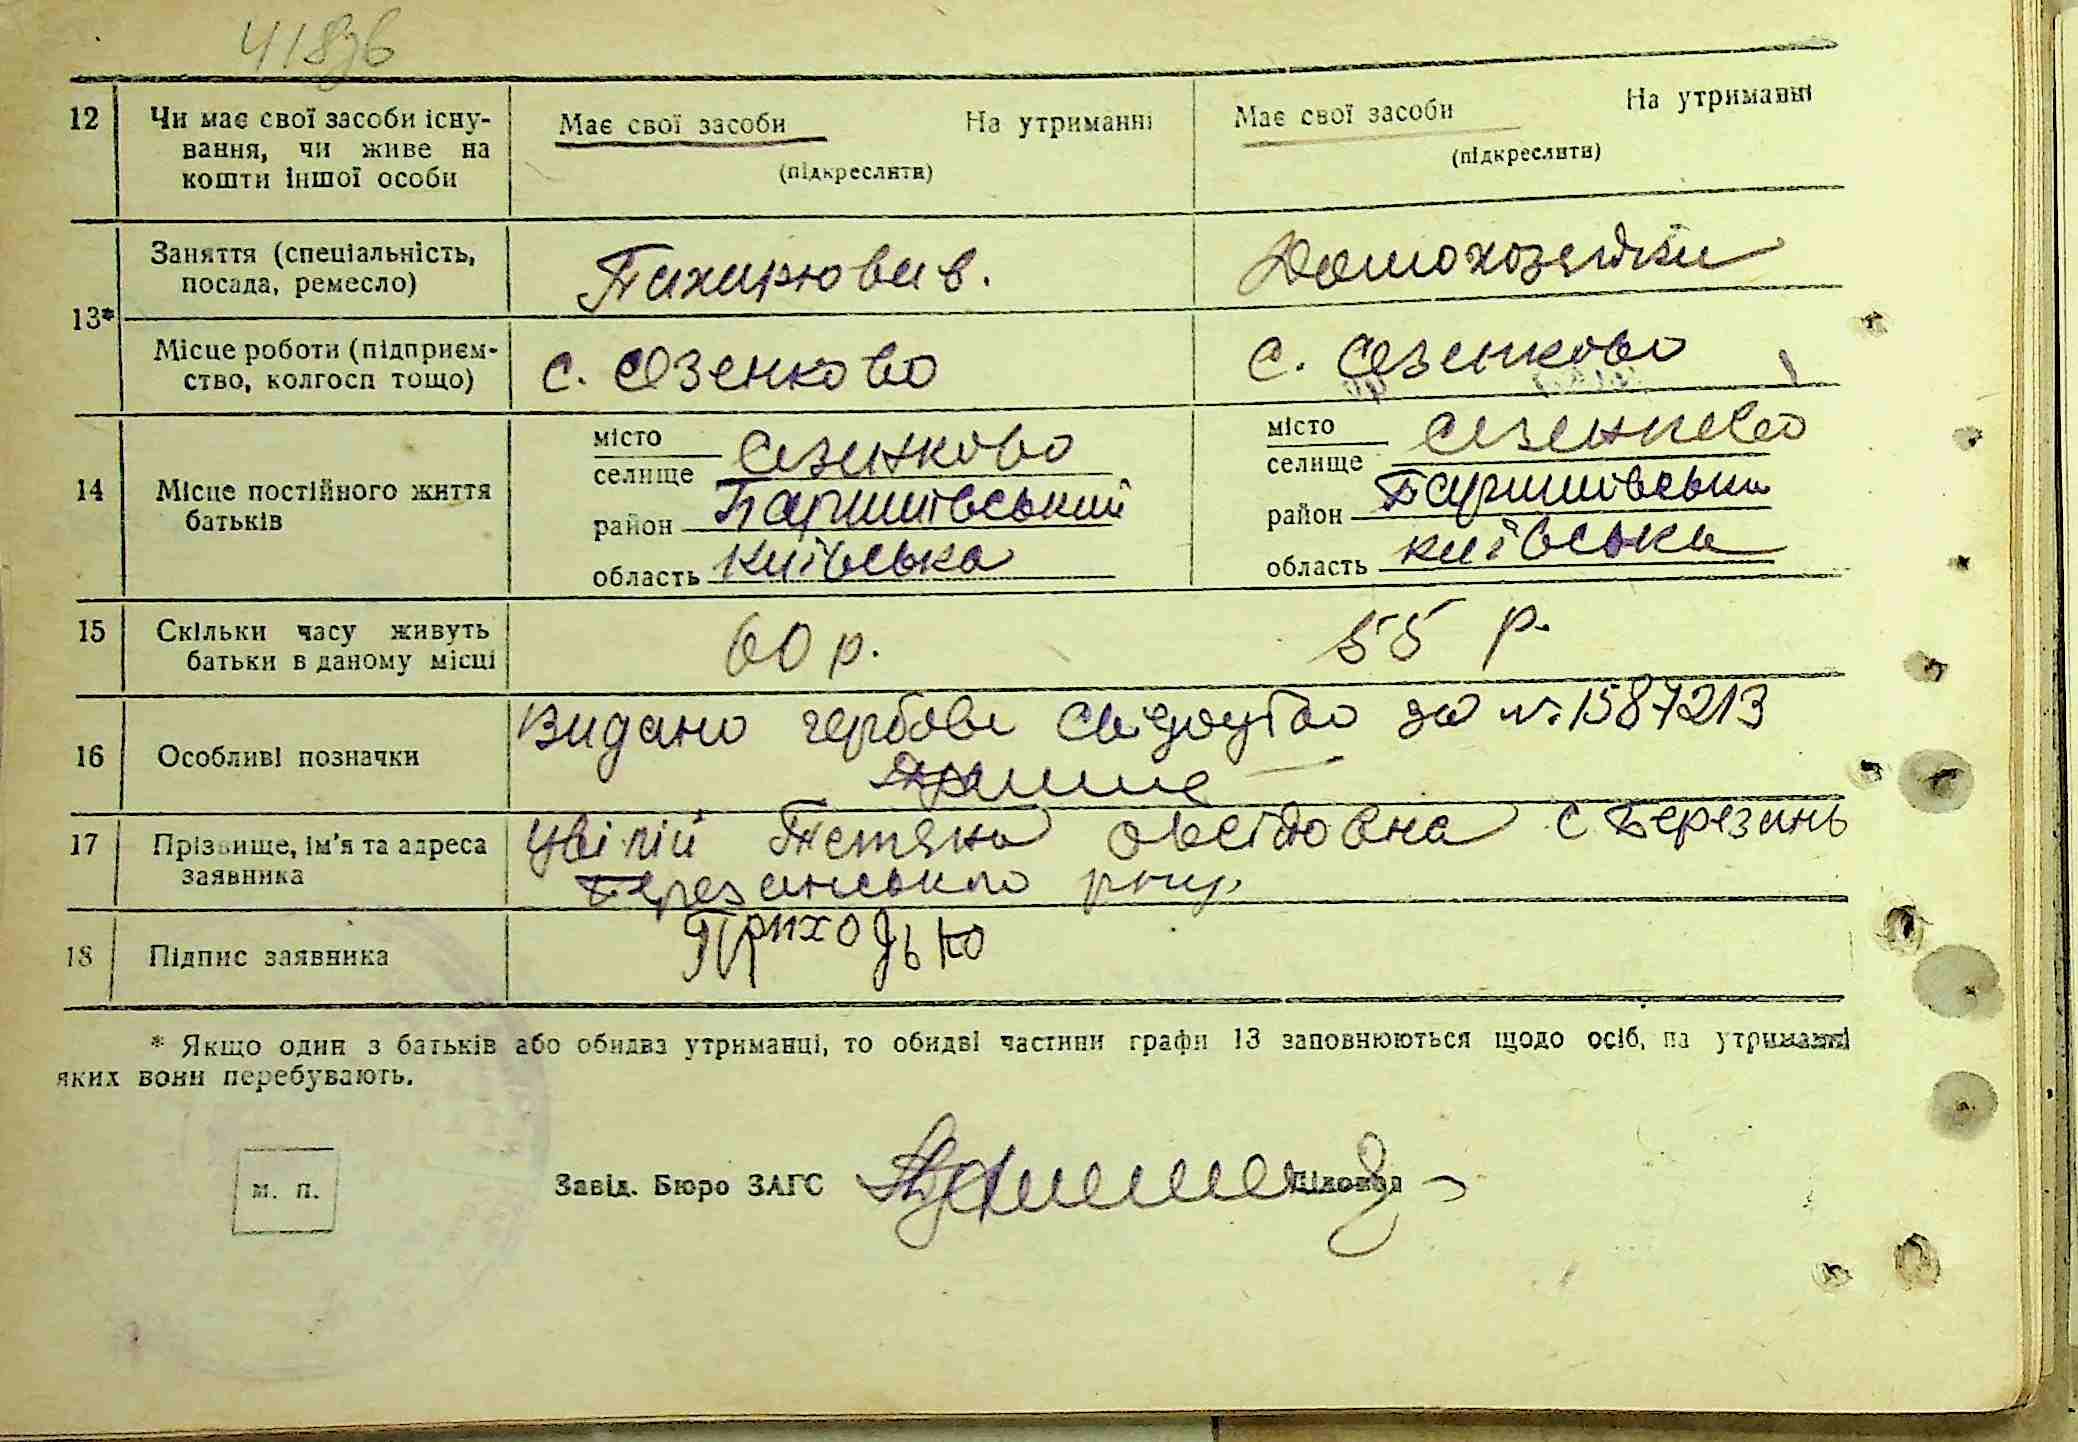 418зв
12 Чи має свої засоби існу- Має свої засоби На утриманні Має свої засоби На утриманні
вання, чи живе на (підкреслити) (підкреслити)
кошти іншої особи
13* Заняття (спеціальність, Домохозяйки
посада, ремесло)
Місце роботи (підприєм- с. Сезенково с. Сезенково
ство, колгосп тощо)
14 Місце постійного життя місто Сезенково місто Сезенково
батьків селище селище
район Баришівський район Баришівська
область Київська область Київська
15 Скільки часу живуть 60 р. 55 р.
батьки в даному місці
16 Особливі позначки Видано гербове свідоцтво за №1587213
17 Прізвище, ім'я та адреса Тетяна Овсіювна с Березань
заявника Березанського р-ну.
18 Підпис заявника Приходько
* Якщо один з батьків або обидва утриманці, то обидві частини графи 13 заповнюються щодо осіб, на утриманні
яких вони перебувають.
м. п. Завід. Бюро ЗАГС Діловод